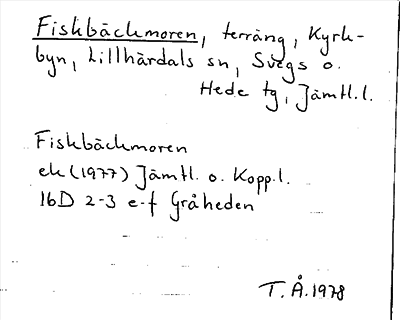 Fiskbäckmoren, terräng, Kyrk-
byn, Lillhärdals sn, Svegs o.
Hede tg, Jämtl.l.
Fiskbäckmoren
ek (1977) Jämtl. o. Kopp.l.
16D 2-3 e-f Gråheden
T.Å.1978